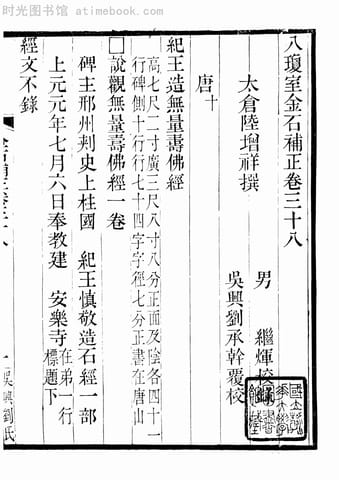 時光图书馆 atimebook.com
八瓊室金石補正卷三十八
太倉陸增祥撰
男 繼煇校錄
吳興劉承幹覆校
唐十
紀王造無量壽佛經
高七尺二寸廣三尺八寸八分正面及陰各四十一
行碑側十行行七十四字字徑七分正書在唐山
□說觀無量壽佛經一卷
碑主邢州刺史上柱國 紀王慎敬造石經一部
上元元年七月六日奉教建 安樂寺在弟一行
標題下
經文不錄
吳興劉氏